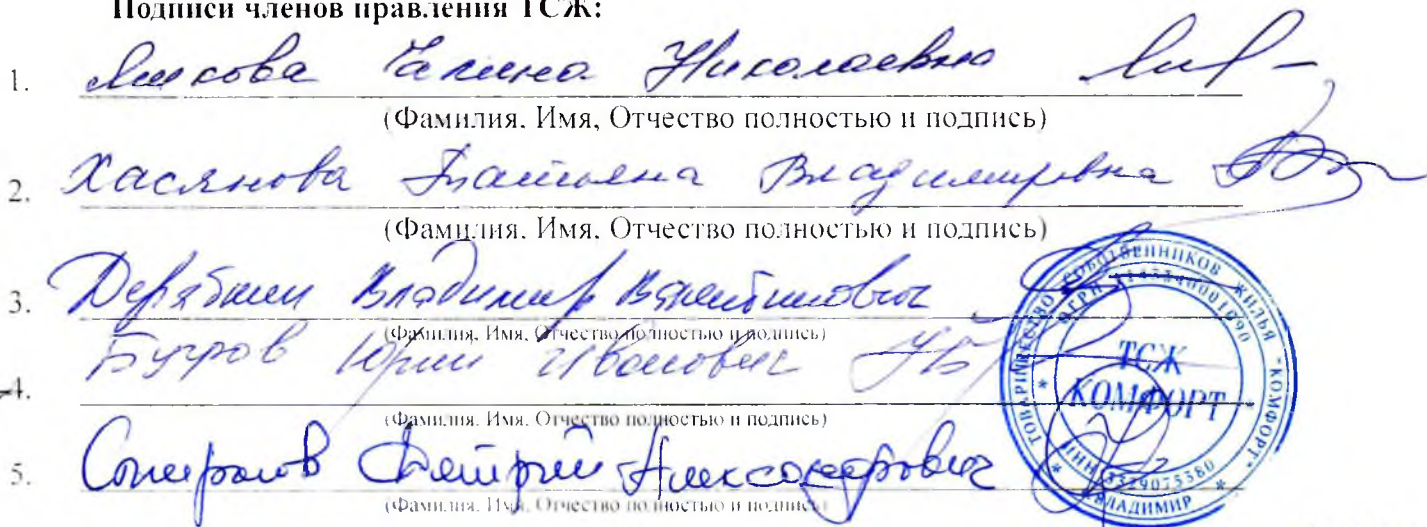 Подписи членов правления ТСЖ:
1. Галина Николаевна
(Фамилия, Имя, Отчество полностью и подпись)
2. Хасянова Татьяна Владимировна
(Фамилия, Имя, Отчество полностью и подпись)
3. Дерябин Владимир Валентинович
(Фамилия, Имя, Отчество полностью и подпись)
Бугров Юрий Иванович
4.
(Фамилия, Имя, Отчество полностью и подпись)
5. Дмитрий Александрович
(Фамилия, Имя, Отчество полностью и подпись)
ТОВАРИЩЕСТВО СОБСТВЕННИКОВ ЖИЛЬЯ "КОМФОРТ"
ОГРН
ТСЖ
КОМФОРТ
ИНН 3329075580
* ВЛАДИМИР *